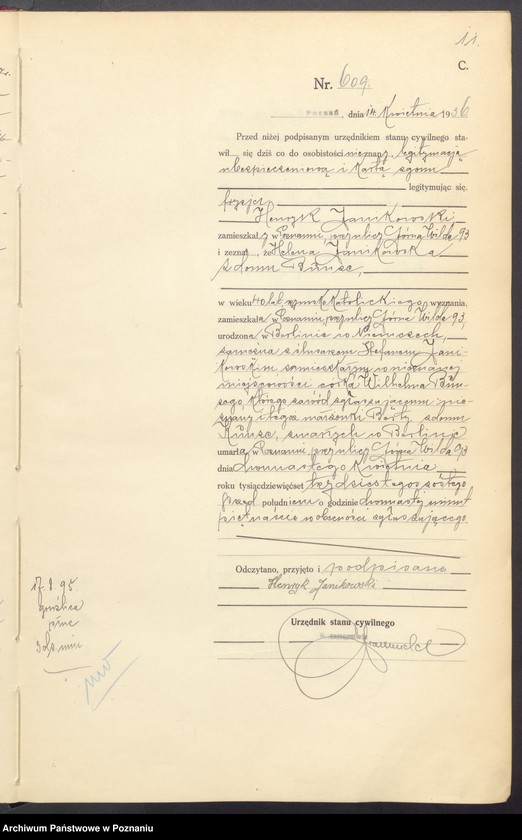 11.
C.
Nr. 609.
Poznań, dnia 14. Kwietnia 1936
Przed niżej podpisanym urzędnikiem stanu cywilnego sta-
wił się dziś co do osobistości nieznany, legitymacją
ubezpieczeniową i kartą zgonu
legitymując się.
Henryk Janikowski,
zamieszkały w Poznaniu, przy ulicy Górna Wilda 93
i zeznał, że Helena Janikowska
z domu Bunse,
w wieku 40 lat, rzymsko Katolickiego, wyznania,
zamieszkała w Poznaniu, przy ulicy Górna Wilda 93,
urodzona w Berlinie w Niemczech,
zamężna z ślusarzem Stefanem Jani-
kowskim zamieszkałym w nieznanej
miejscowości córka Wilhelma Bun-
sego, którego zawód zgłaszającemu nie-
znany i tegoż małżonki Berty z domu
Kunse, zmarłych w Berlinie
umarła w Poznaniu, przy ulicy Górna Wilda 93
dnia dwunastego Kwietnia
roku tysiącdziewięćset trzydziestego szóstego
przed południem o godzinie dwunastej minut
piętnaście w obecności zgłaszającego.
Odczytano, przyjęto i podpisano
Henryk Janikowski
Urzędnik stanu cywilnego
17. 8. 95
gruźlica
płuc
Archiwum Państwowe w Poznaniu